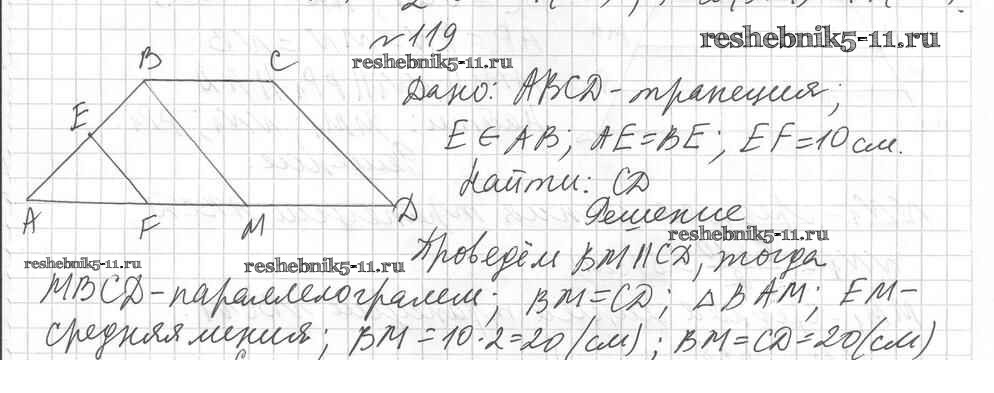 №119
reshebnik5-11.ru
reshebnik5-11.ru
B C
E
A F M D
Дано: ABCD-трапеция;
E ∈ AB; AE=BE; EF=10см.
Найти: CD
Решение
reshebnik5-11.ru
Проведём BM||CD, тогда
reshebnik5-11.ru
reshebnik5-11.ru
MBCD-параллелограмм; BM=CD; △BAM; EM-
средняя линия; BM=10·2=20(см); BM=CD=20(см)